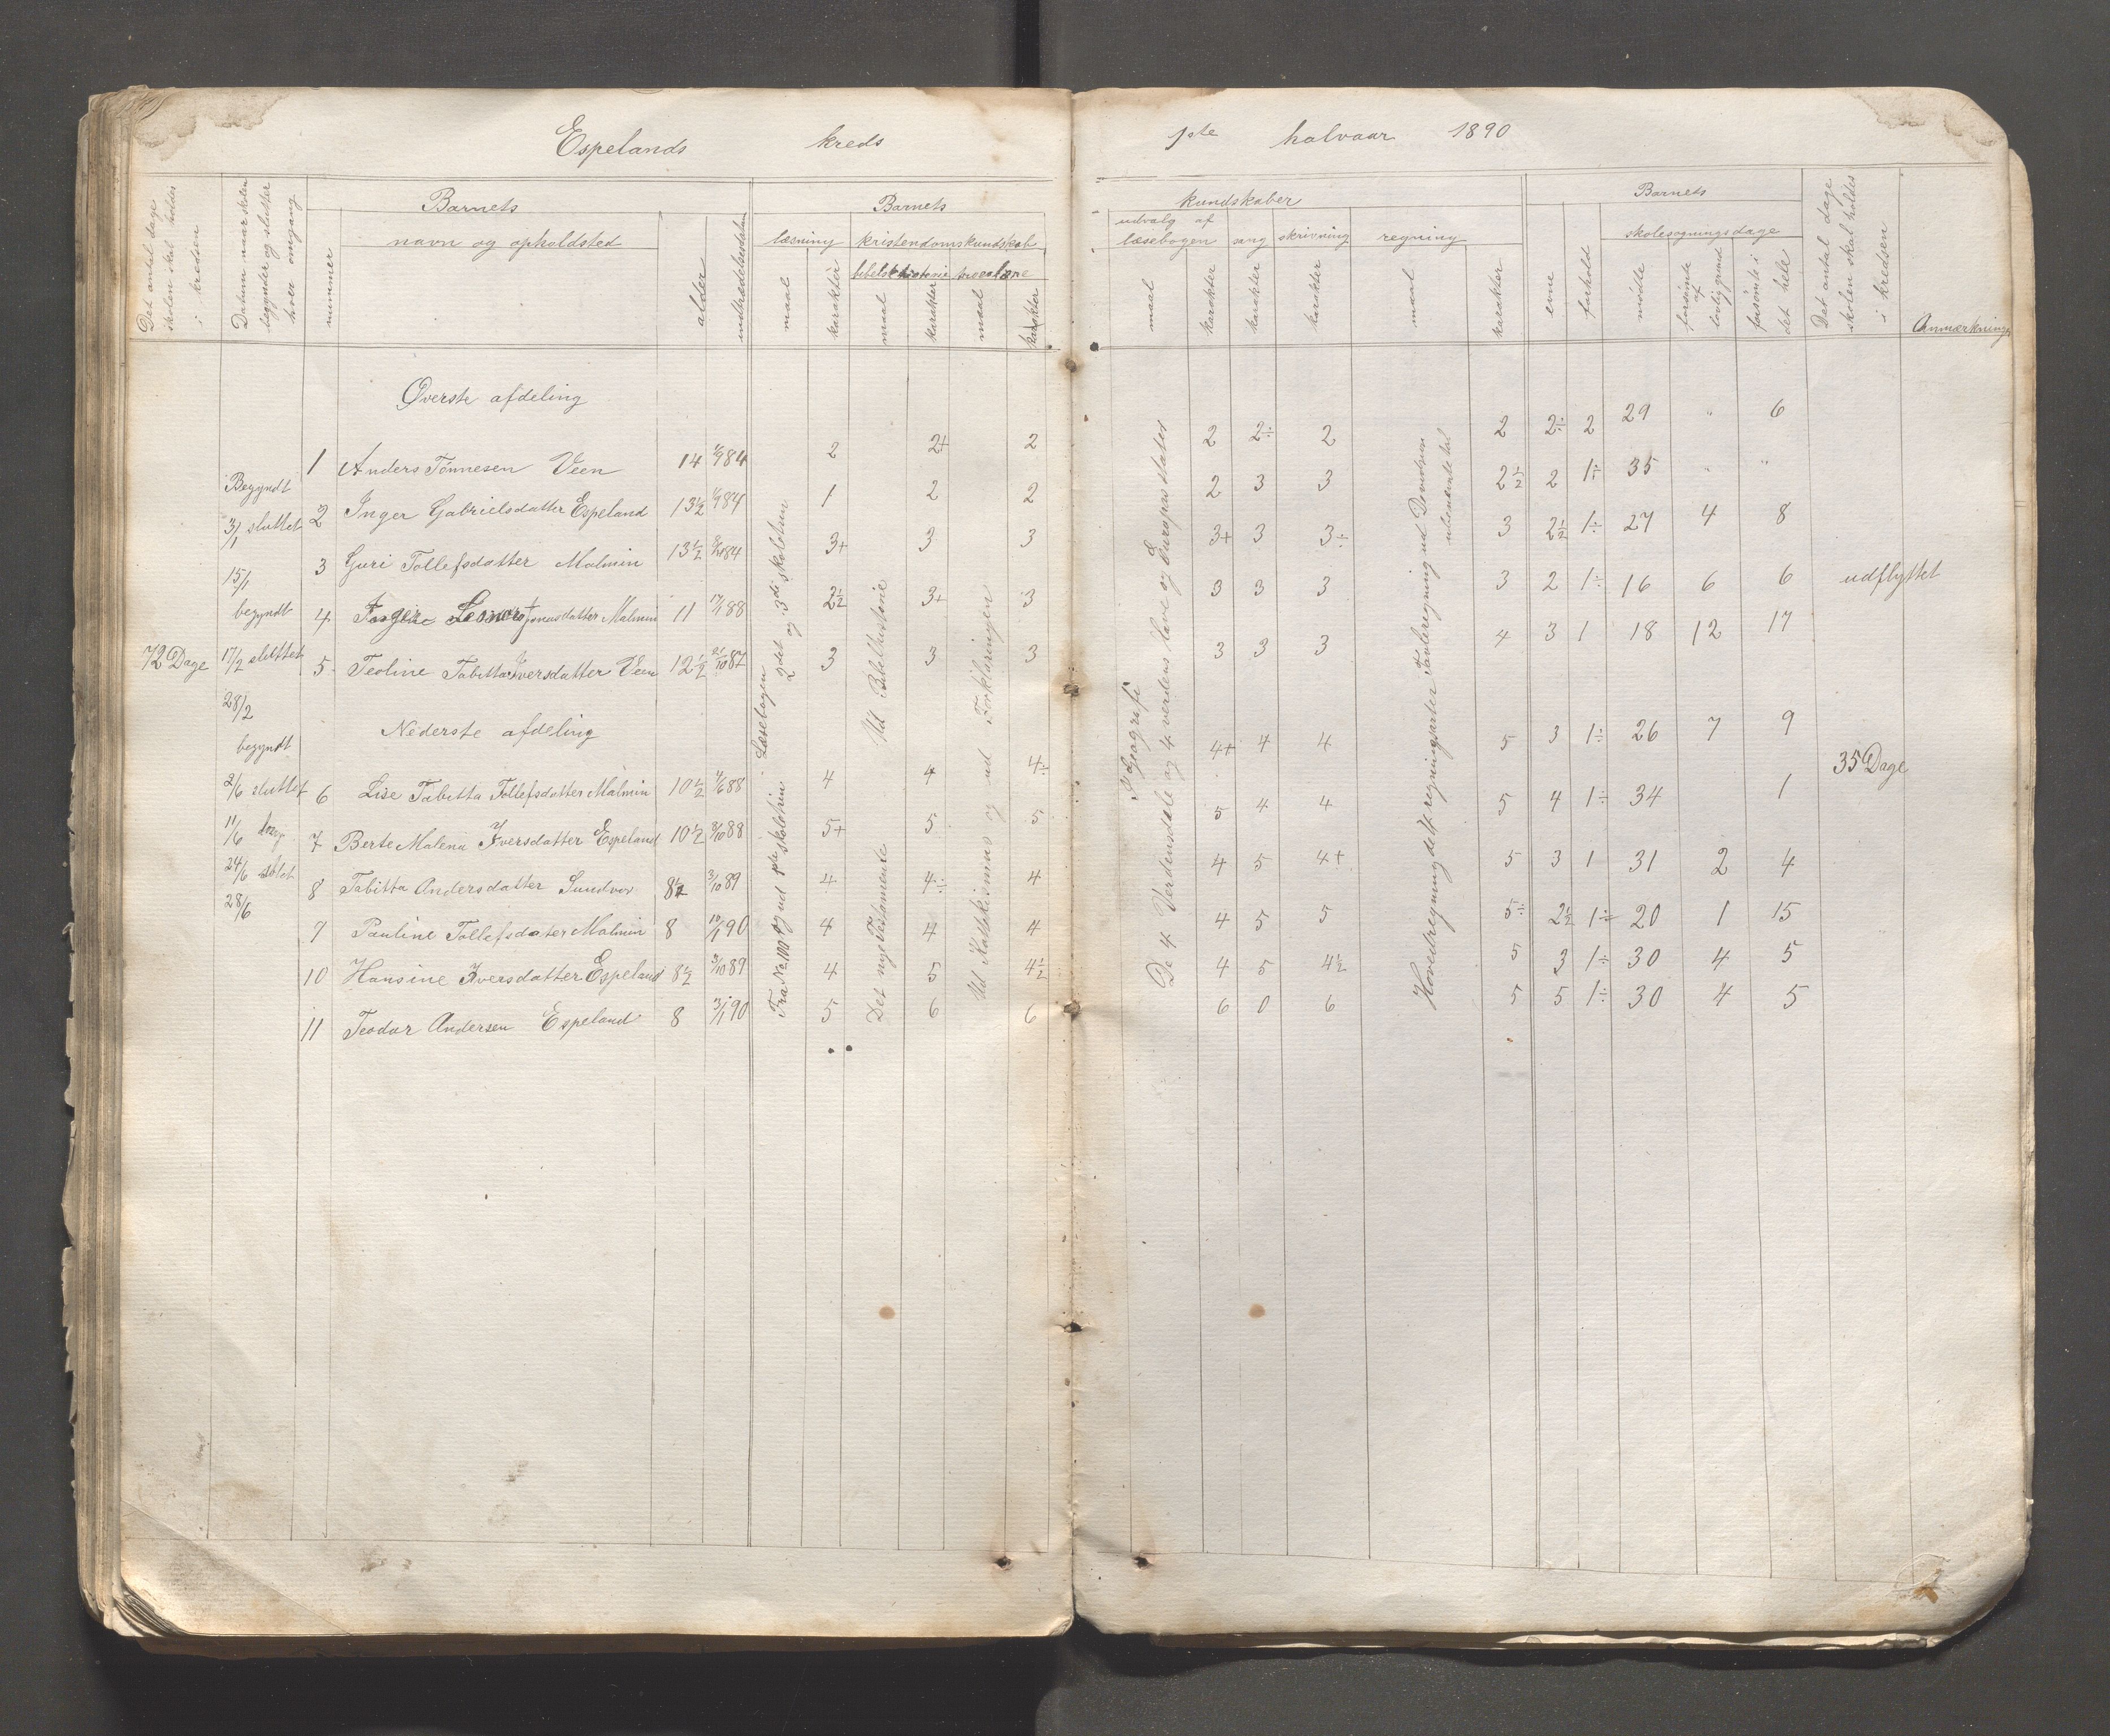 Espelands kreds
1ste halvaar 1890
Det antal dage skolen skal holdes i kredsen
Datum naar skolen begynder og slutter hver omgang
nummer
Barnets
navn og opholdsted
alder
indtrædelsesdatum
Barnets
læsning
maal
karakter
kristendomskundskab
bibelsk historie
maal
karakter
troeslære
maal
karakter
kundskaber
udvalg af læsebogen
maal
karakter
sang
karakter
skrivning
karakter
regning
maal
karakter
Barnets
evne
forhold
skolesøgningsdage
mødte
forsømte af lovlig grund
forsømte i det hele
Det antal dage skolen skal holdes i kredsen
Anmærkning
Øverste afdeling
1 Anders Tønnesen Veen 14 84 2 2+ 2 2 2÷ 2 2 2÷ 2 29 " 6
2 Inger Gabrielsdatter Espeland 13½ 84 1 2 2 2 3 3 2½ 2 1÷ 35 " "
3 Guri Tollefsdatter Malmin 13½ 84 3+ 3 3 3+ 3 3÷ 3 2½ 1÷ 27 4 8
4 Jonasdatter Malmin 11 17/1 88 2½ 3+ 3 3 3 3 3 2 1÷ 16 6 6 udflyttet
5 Teoline Tabitta Iversdatter Veen 12½ 21/10 87 3 3 3 3 3 3 4 3 1 18 12 17
Nederste afdeling
6 Lise Tabitta Tollefsdatter Malmin 10½ 88 4 4 4÷ 4+ 4 4 5 3 1÷ 26 7 9
35 Dage
7 Berte Malena Iversdatter Espeland 10½ 88 5+ 5 5 5 4 4 5 4 1÷ 34 1
8 Tabitta Andersdatter Sundvor 8½ 3/10 89 4 4÷ 4 4 5 4+ 5 3 1 31 2 4
9 Pauline Tollefsdater Malmin 8 90 4 4 4 4 5 5 5÷ 2½ 1÷ 20 1 15
10 Hansine Iversdatter Espeland 8½ 3/10 89 4 5 4½ 4 5 4½ 5 3 1÷ 30 4 5
11 Teodor Andersen Espeland 8 3/1 90 5 6 6 6 0 6 5 5 1÷ 30 4 5
72 Dage
Begyndt
3/1 sluttet
15/1
begyndt
17/2 sluttet
28/2
begyndt
2/6 sluttet
11/6 beg.
24/6 slut
28/6
Læsebogen 2det og 3die skoletrin
Fra No. 100 og ud 1ste skoletrin
Ud Bibelhistorie
Det nye Testamente
Ud Katekismus og ud Forklaringen
I Geografi
De 4 Verdensdele og 4 verdens have og Europas stater
Hovedregning de 4 regningsarter Tavleregning ud
ubenævnte tal